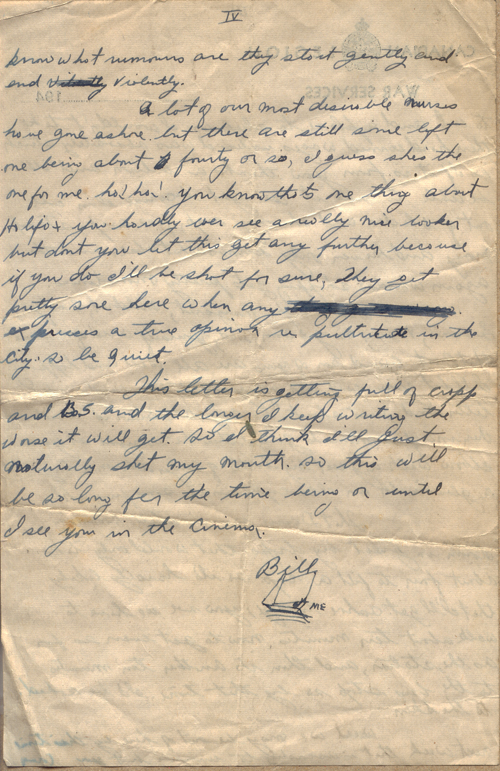 IV
know what rumours are they start gently and
end violently.
A lot of our most desirable nurses
have gone ashore but there are still some left
one being about fourty or so, I guess she's the
one for me. ho! ho! you know that's one thing about
Halifax you hardly ever see a really nice looker
but dont you let this get any further because
if you do I'll be shot for sure, They get
pretty sore here when any
expresses a true opinion in pultritute in the
city. so be quiet.
This letter is getting full of crapp
and B.S. and the longer I keep writing the
worse it will get. so I think I'll just
naturally shet my mouth. so this will
be so long for the time being or until
I see you in the Cinema.
Billy
ME